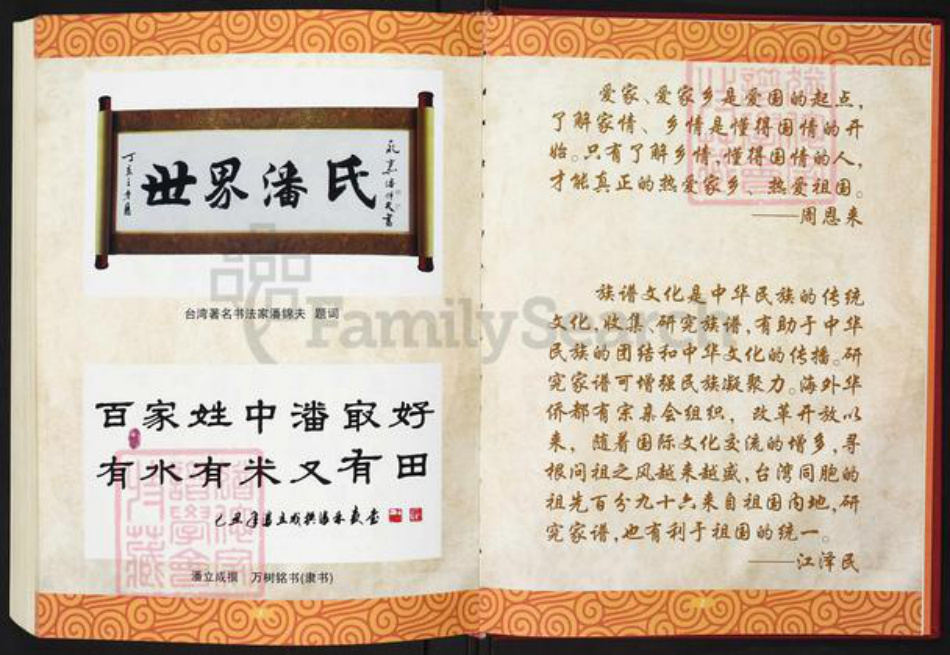 世界潘氏
台湾著名书法家潘錦夫 题词
百家姓中潘最好
有水有米又有田
潘立成撰 万树铭书(隶书)
爱家、爱家乡是爱国的起点,
了解家情、乡情是懂得国情的开
始。只有了解乡情,懂得国情的人,
才能真正的热爱家乡 热爱祖国。
——周恩来
族谱文化是中华民族的传统
文化,收集、研究族谱,有助于中华
民族的团结和中华文化的传播。研
究家谱可增强民族凝聚力。海外华
侨都有宗亲会组织, 改革开放以
来, 随着国际文化交流的增多,寻
根问祖之风越来越盛,台湾同胞的
祖先百分九十六来自祖国内地,研
究家谱,也有利于祖国的统一。
——江泽民
FamilySearch